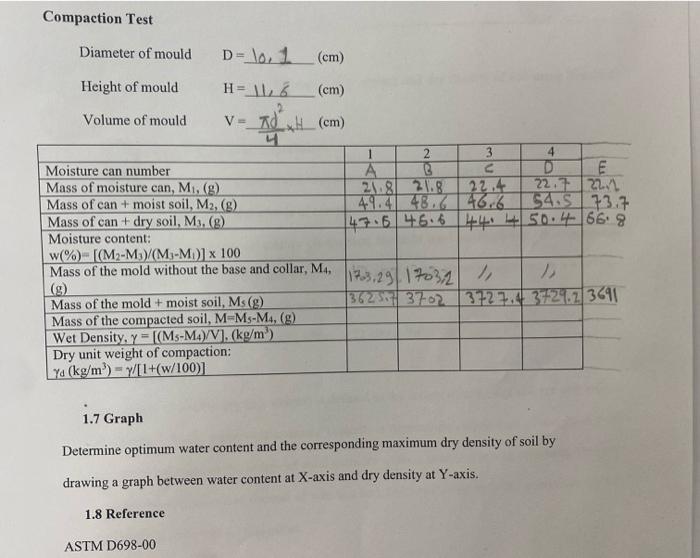 Compaction Test
Diameter of mould D = 10,1 (cm)
Height of mould H = 11,6 (cm)
Volume of mould V = πd²/4 × H (cm)
1 2 3 4
Moisture can number A B C D E
Mass of moisture can, M₁, (g) 21.8 21.8 22.4 22.7 22.1
Mass of can + moist soil, M₂, (g) 49.4 48.6 46.6 54.5 73.7
Mass of can + dry soil, M₃, (g) 47.6 46.6 44.4 50.4 66.8
Moisture content:
w(%)= [(M₂-M₃)/(M₃-M₁)] x 100
Mass of the mold without the base and collar, M₄,
(g) 1703.29 1703,2 〃 〃
Mass of the mold + moist soil, M₅ (g) 3625.7 3702 3727.4 3729.2 3691
Mass of the compacted soil, M=M₅-M₄, (g)
Wet Density, γ = [(M₅-M₄)/V], (kg/m³)
Dry unit weight of compaction:
γd (kg/m³) = γ/[1+(w/100)]
1.7 Graph
Determine optimum water content and the corresponding maximum dry density of soil by
drawing a graph between water content at X-axis and dry density at Y-axis.
1.8 Reference
ASTM D698-00